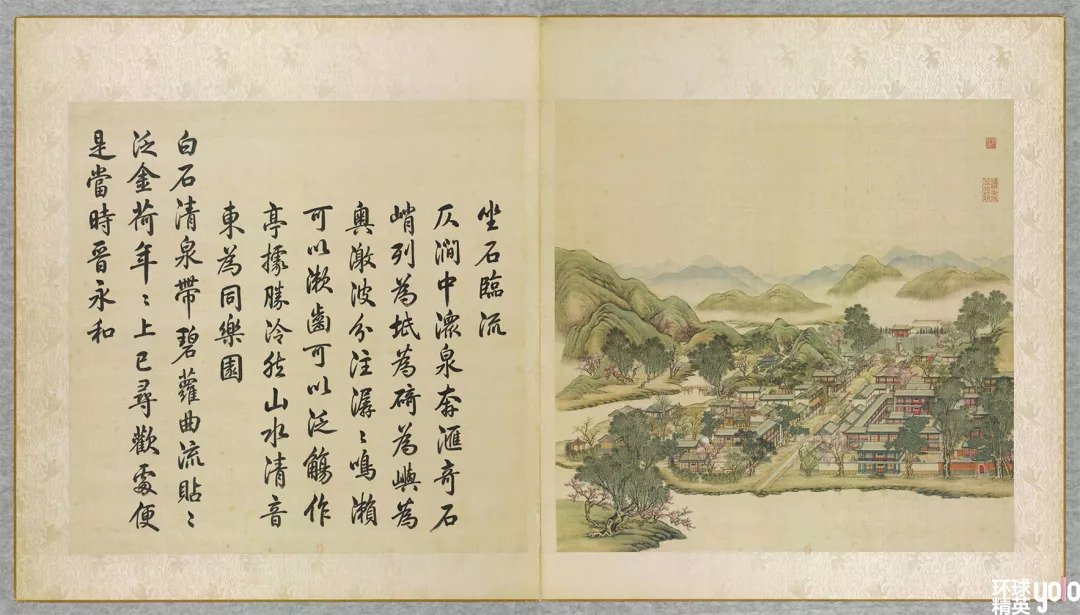 坐石臨流
仄澗中瀠泉奔滙奇石
峭列為坻為碕為嶼為
奧激波分注潺〻鳴瀨
可以漱齒可以泛觴作
亭據勝泠然山水清音
東為同樂園
白石清泉帶碧蘿曲流貼〻
泛金荷年〻上巳尋歡處便
是當時晉永和
环球
精英
yolo